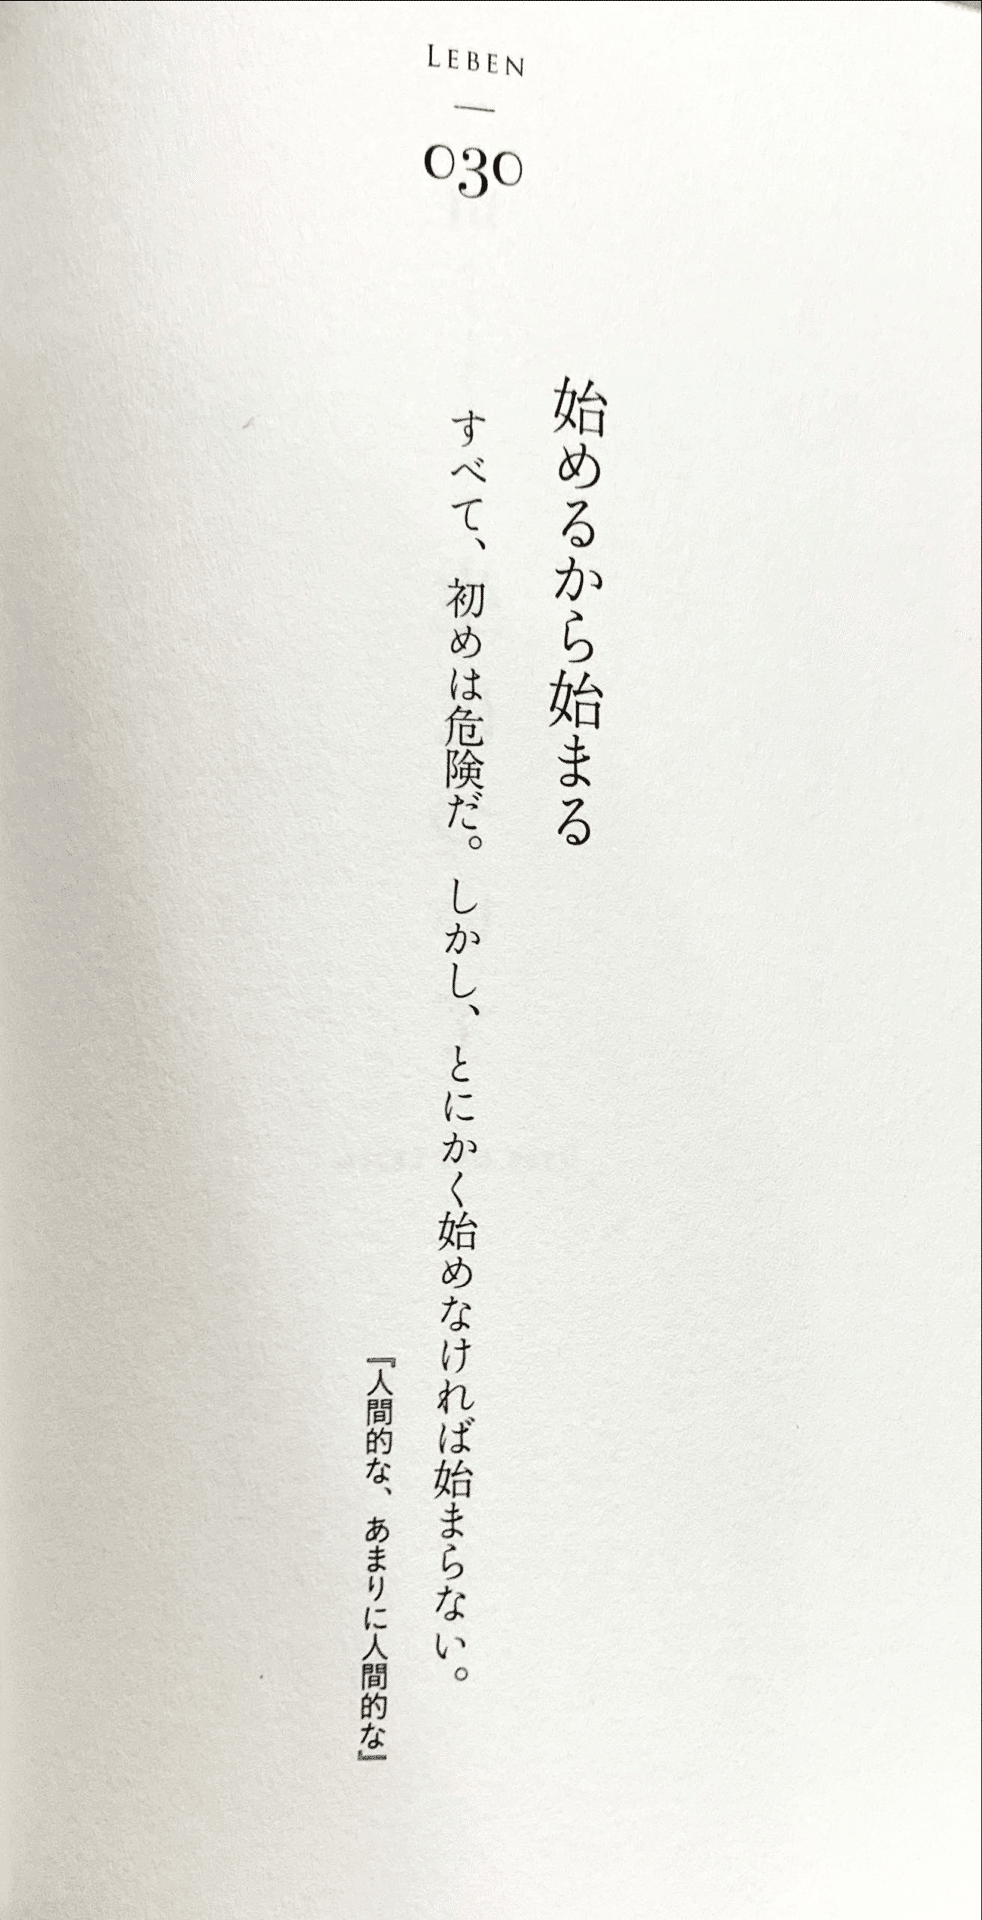 LEBEN
030
始めるから始まる
すべて、初めは危険だ。しかし、とにかく始めなければ始まらない。
『人間的な、あまりに人間的な』